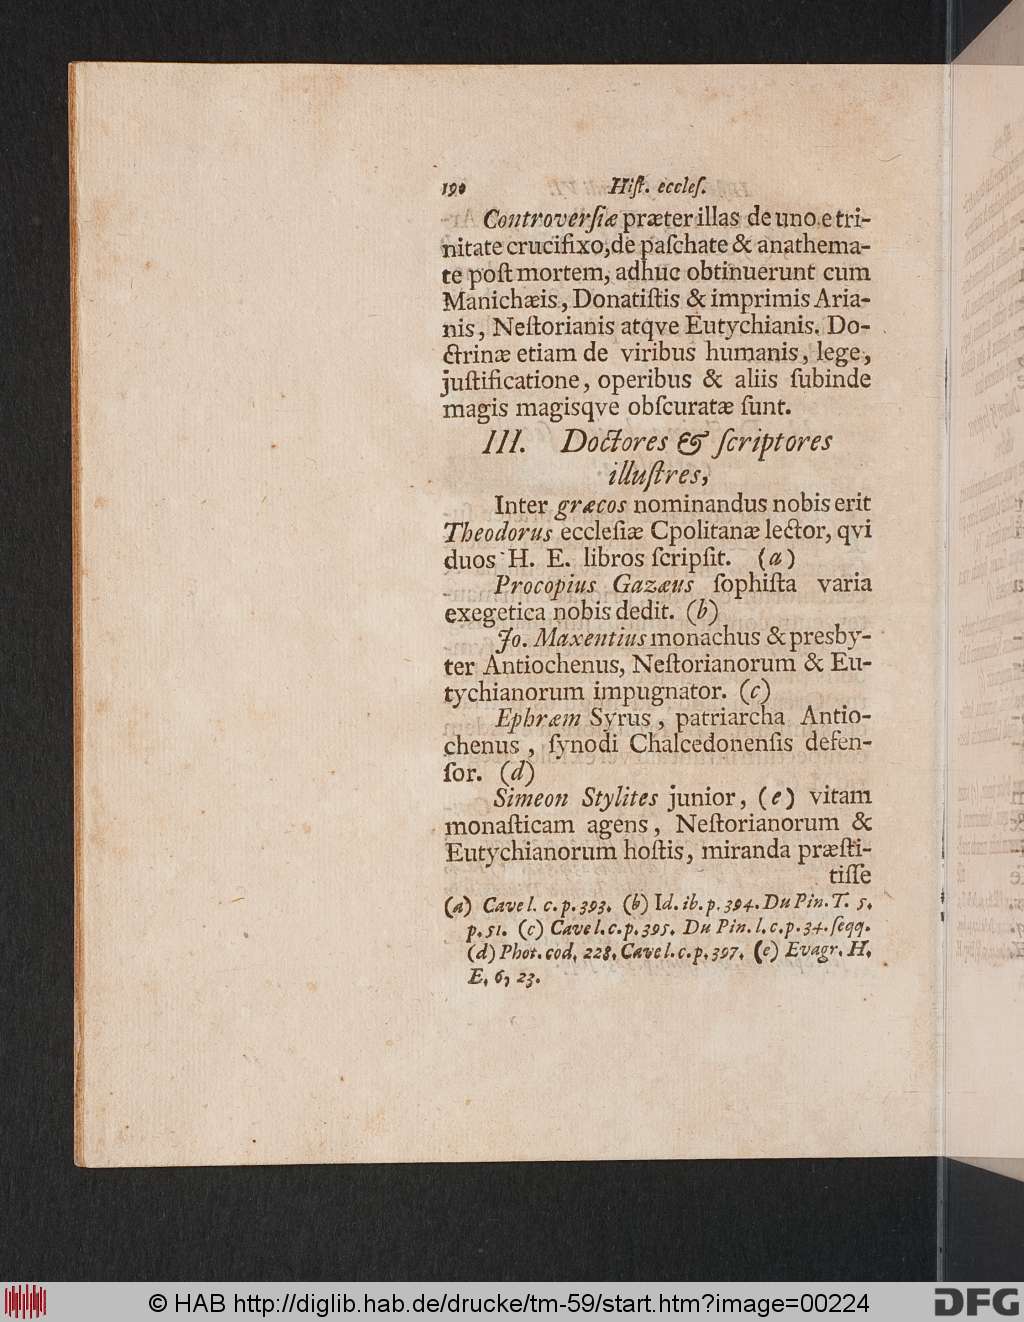 190 Hiſt. eccleſ.
Controverſiæ præter illas de uno e tri-
nitate crucifixo, de paſchate & anathema-
te poſt mortem, adhuc obtinuerunt cum
Manichæis, Donatiſtis & imprimis Aria-
nis, Neſtorianis atqve Eutychianis. Do-
ctrinæ etiam de viribus humanis, lege,
juſtificatione, operibus & aliis ſubinde
magis magisqve obſcuratæ ſunt.
III. Doctores & ſcriptores
illuſtres,
Inter græcos nominandus nobis erit
Theodorus eccleſiæ Cpolitanæ lector, qvi
duos H. E. libros ſcripſit. (a)
Procopius Gazæus ſophiſta varia
exegetica nobis dedit. (b)
Jo. Maxentius monachus & presby-
ter Antiochenus, Neſtorianorum & Eu-
tychianorum impugnator. (c)
Ephræm Syrus, patriarcha Antio-
chenus, ſynodi Chalcedonenſis defen-
ſor. (d)
Simeon Stylites junior, (e) vitam
monaſticam agens, Neſtorianorum &
Eutychianorum hoſtis, miranda præſti-
tiſſe
(a) Cave l. c. p. 393. (b) Id. ib. p. 394. Du Pin. T. 5.
p. 51. (c) Cave l. c. p. 395. Du Pin. l. c. p. 34. ſeqq.
(d) Phot. cod. 228. Cave l. c. p. 397. (e) Evagr. H.
E. 6, 23.
© HAB http://diglib.hab.de/drucke/tm-59/start.htm?image=00224
DFG